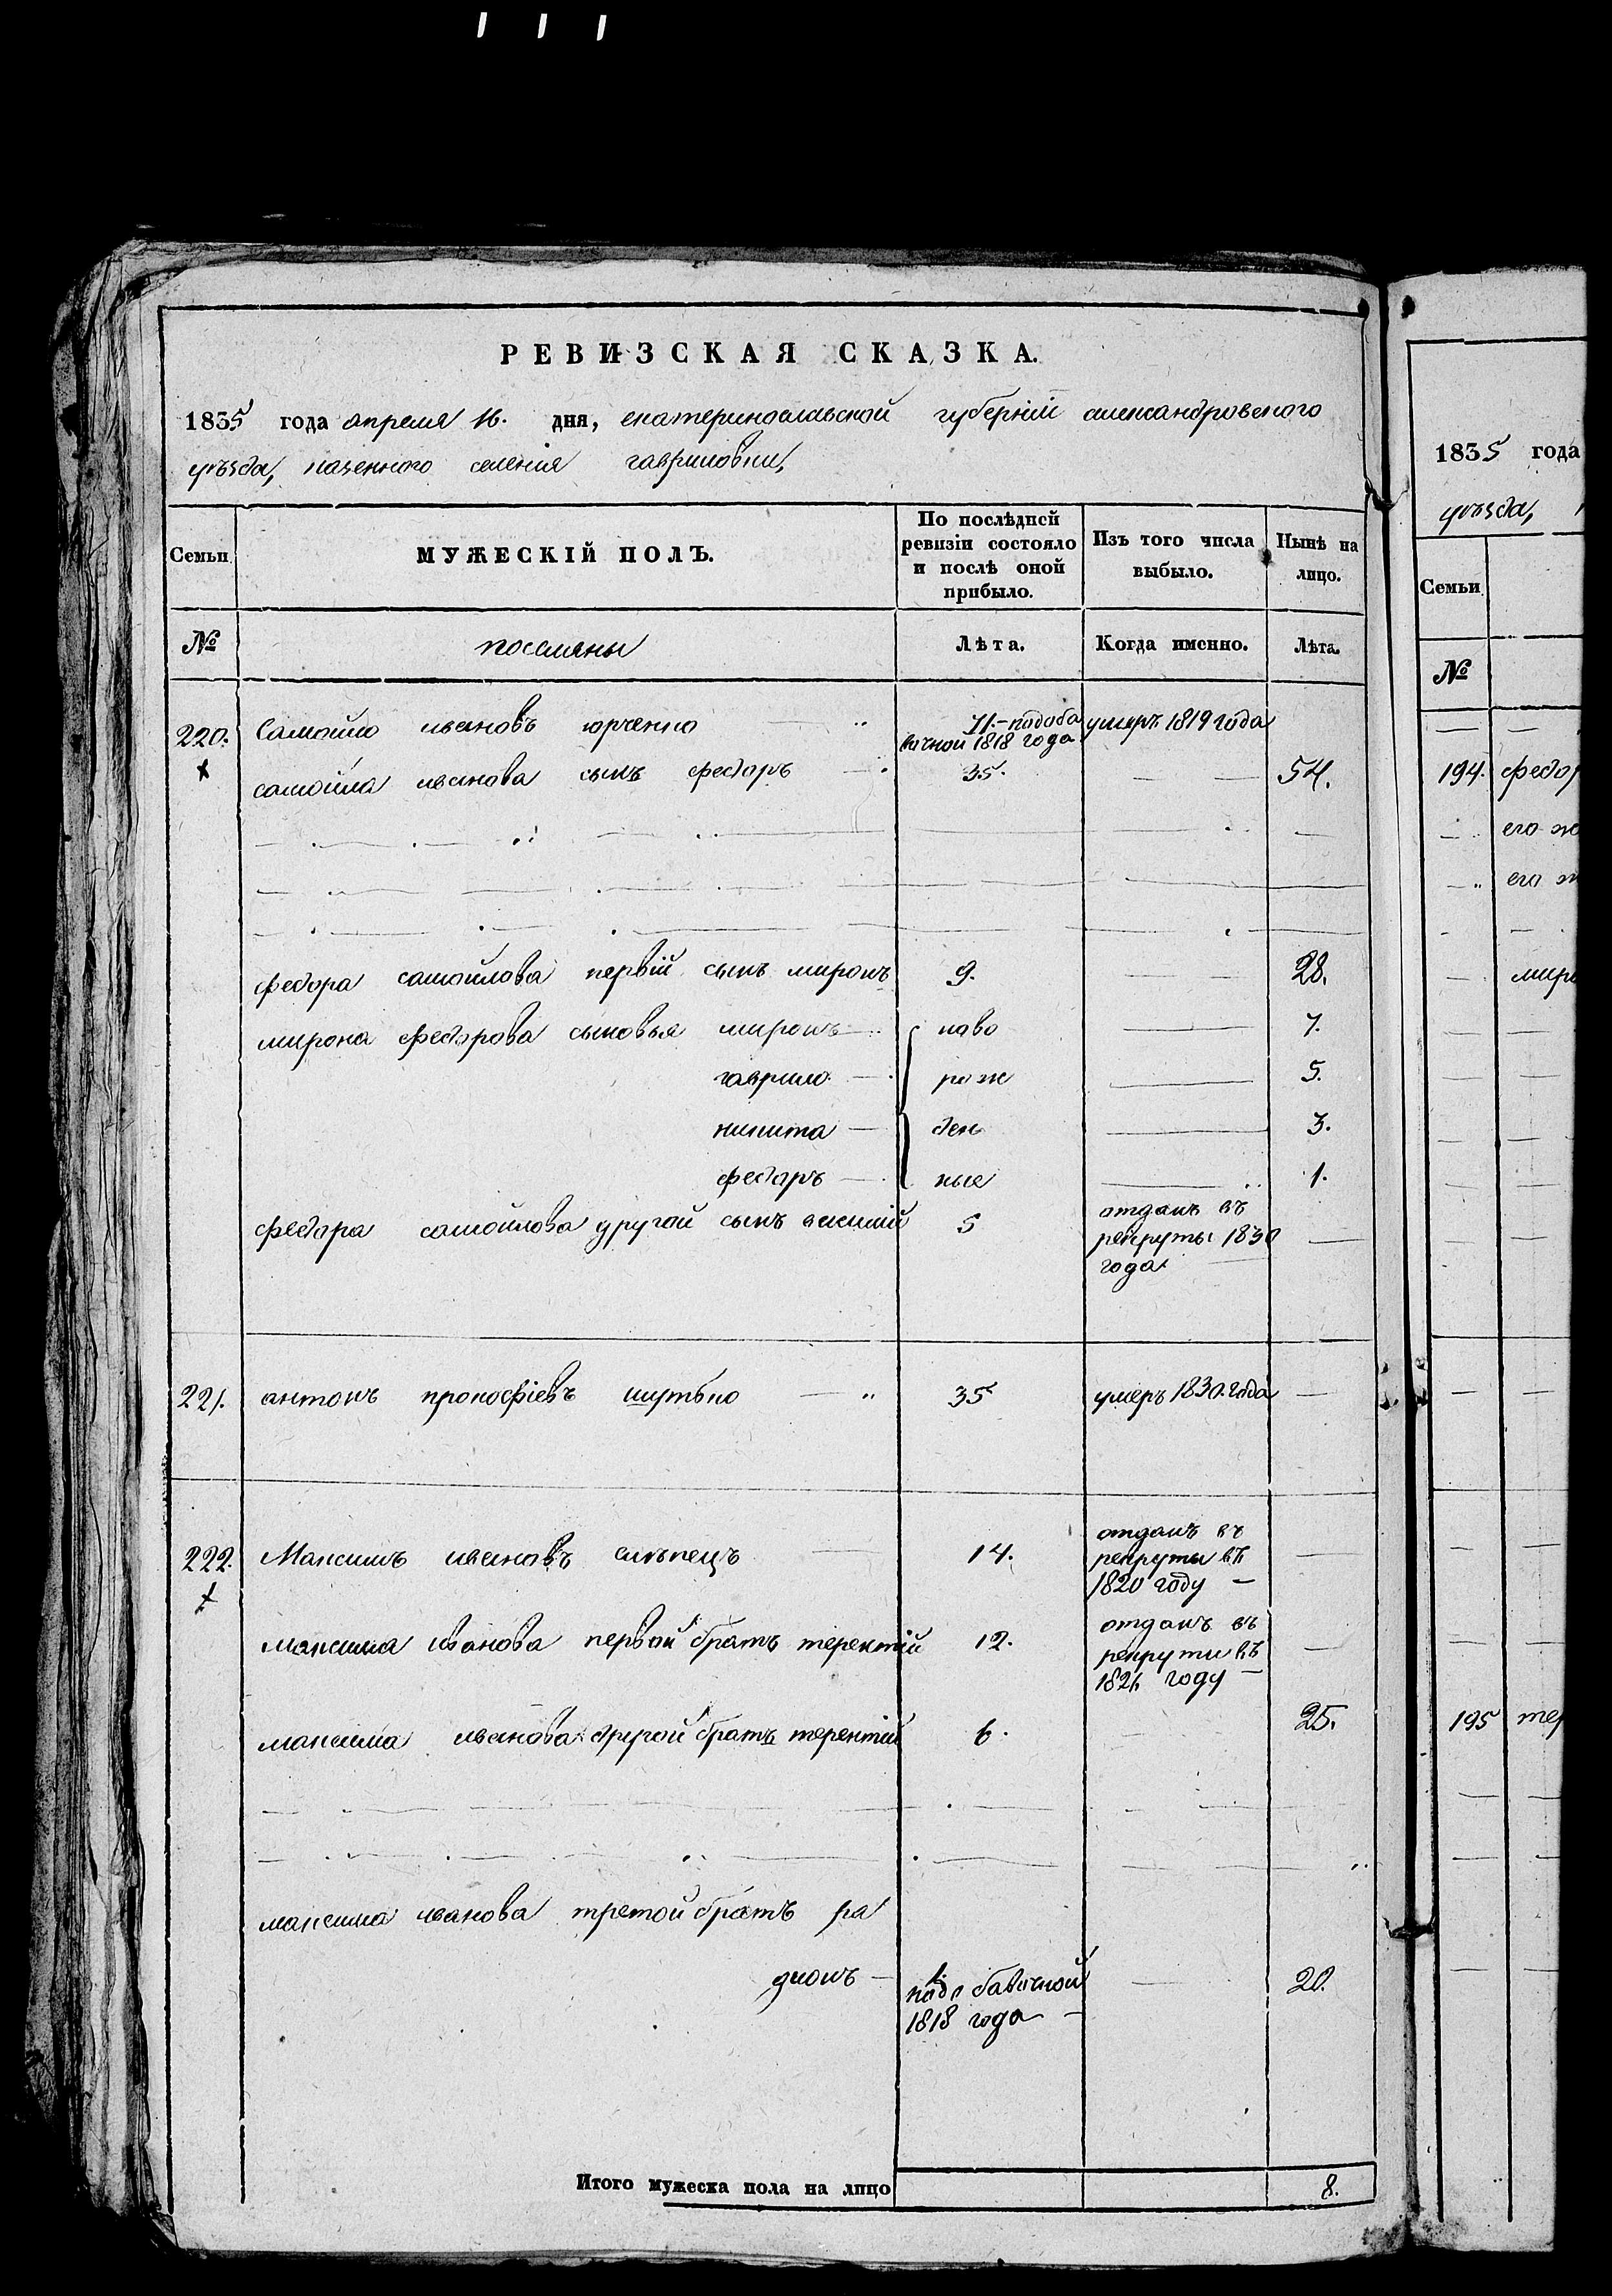 РЕВИЗСКАЯ СКАЗКА.
1835 года апреля 16. дня, екатеринославской губерніи александровского
уѣзда, казенного селенія гавриловки,
Семьи
МУЖЕСКІЙ ПОЛЪ.
По послѣдней ревизіи состояло и послѣ оной прибыло.
Изъ того числа выбыло.
Нынѣ на лицо.
№
поселяны
Лѣта.
Когда именно.
Лѣта.
220. Самойло ивановъ юрченко 71.-подоба вочной 1818 года умеръ 1819 года
самойла иванова сынъ федоръ 35. 54.
федора самойлова первій сынъ миронъ 9. 28.
мирона федорова сыновья миронъ ново 7.
гаврило рож 5.
никита ден 3.
федоръ ные 1.
федора самойлова другой сынъ 5 отданъ въ
рекруты 1830
года
221. антонъ прокофіевъ шутько 35 умеръ 1830. года
222. Максимъ ивановъ слѣпецъ 14. отданъ въ
рекруты въ
1820 году
максима иванова первой братъ терентій 12. отданъ въ
рекруты въ
году
максима иванова другой братъ терентій 6. 25.
максима иванова третой братъ ра
дионъ 1. подобавочной 20.
1818 года
Итого мужеска пола на лицо 8.
1835 года
уѣзда,
Семьи
№
194. федор
его
его
миро
195 тер